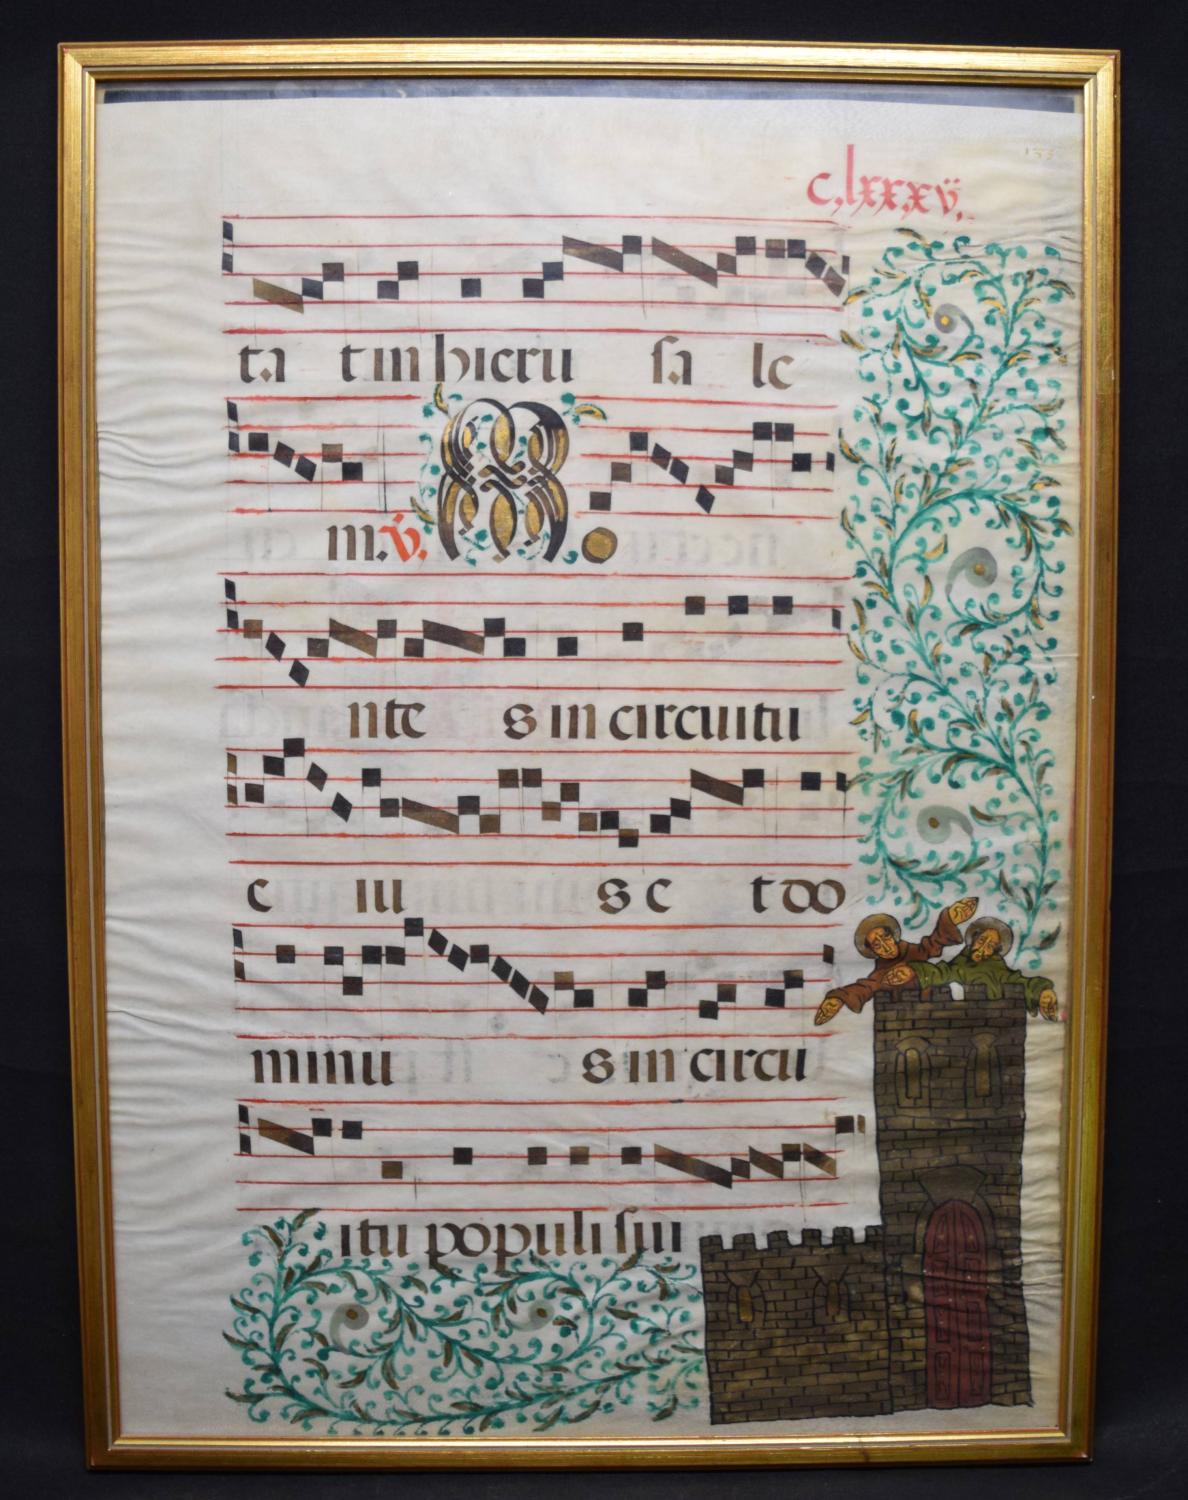 c,lxxxv,
ta tin hieru sa le
m. v. M
nte s in circuitu
e iu s e t do
minu s in circu
itu populi sui